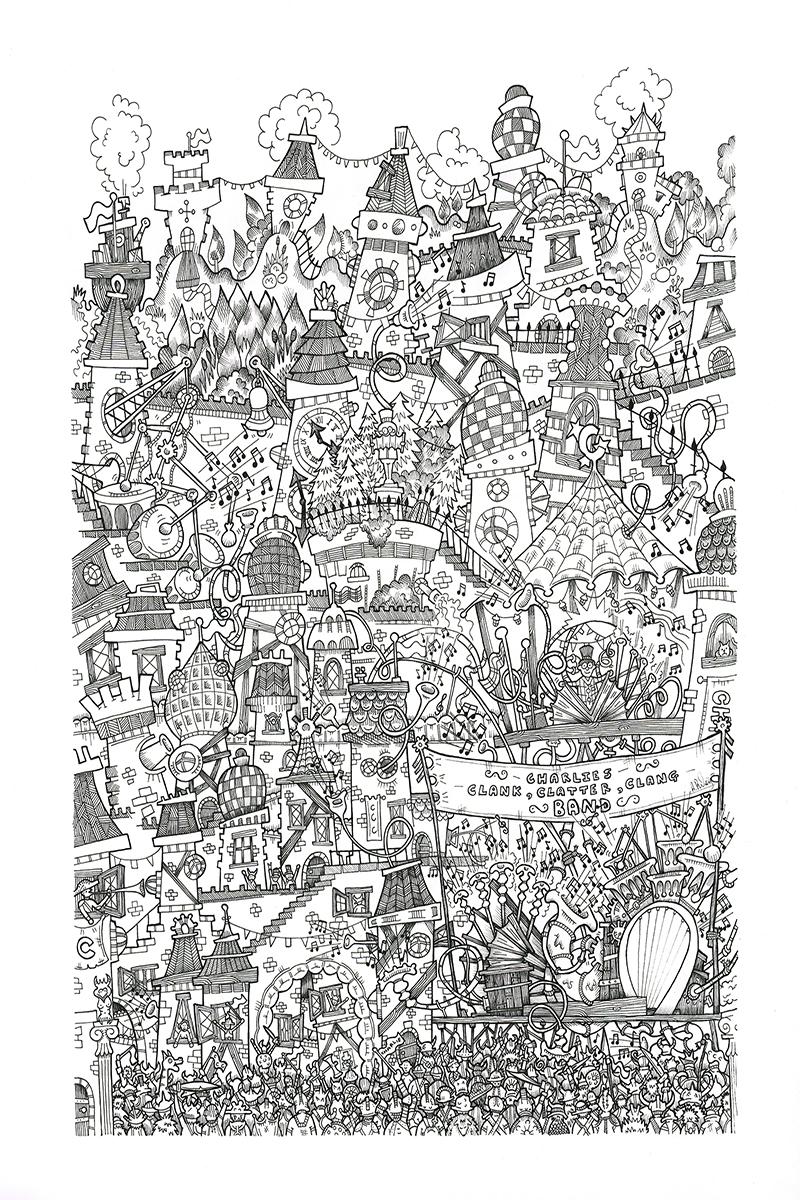 CH
CHARLIES
CLANK, CLATTER, CLANG
BAND
C